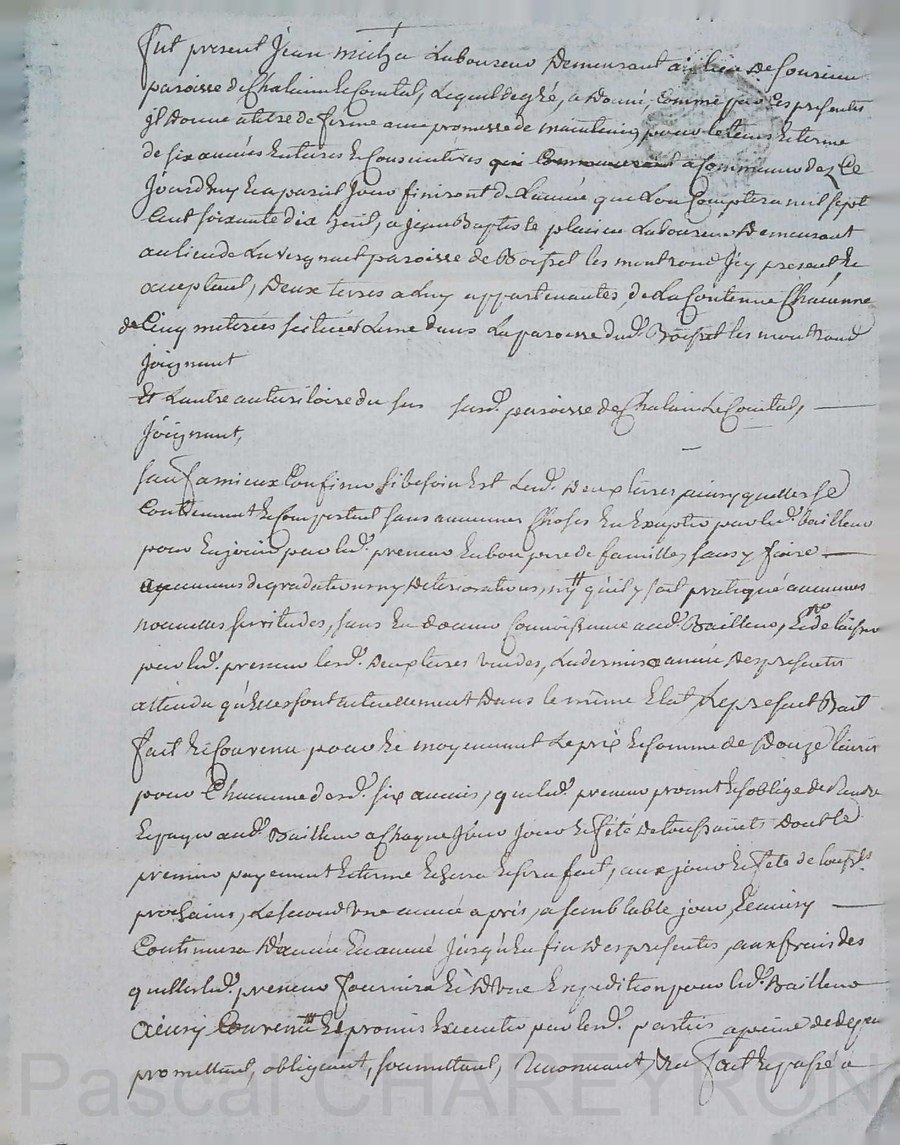 fut present Jean mitza Laboureur Demeurant au lieu de Cousieu
paroisse de Chalain le Comtal, Lequel de gré, a Donné, Comme par Ces presentes
Jl Donne a titre de ferme avec promesse de maintenir, pour le tems & terme
de six années Entieres & Consecutives a Commencer des Ce
Jourdhuy En a pareil Jour finiront de L'année que L'on Comptera mil sept
Cent soixante dix huit, a Jean Baptiste plaine Laboureur Demeurant
au lieu de La vergnat paroisse de Boisset les montrond Jcy present &
acceptant, Deux terres a Luy appartenantes, de La Contenue Chacune
de Cinq meterées scituées L'une dans La paroisse dud. Boisset les montrond
Joignant
Et L'autre au territoire du sus susd. paroisse de Chalain Le Comtal,
Joignant,
sauf a mieux Confiner si besoin Est Lesd. Deux terres ainsy quelles se
Contiennent & Comportent sans aucunes Choses En Excepter par led. bailleur
pour En jouir par led. preneur En bon pere de famille, sans y faire
aucunes degradations ny Deteriorations, ny qu'il y soit pratiqué aucunes
nouvelles servitudes, sans En donner Connoissance aud. Bailleur, & de laisser
par led. preneur lesd. Deux terres vuides, La derniere année Des presentes
attendu qu'Elles sont actuellement Dans le même Etat Le present Bail
fait & Convenu pour & moyennant Le prix & somme de Douze livres
pour Chacune desd. six années, que led. preneur promet & s'oblige de Rendre
& payer aud. Bailleur a Chaque Jour & fête De toussaints Dont Le
premier payement & terme Echerra & sera fait, aux jour & fete de touss.ts
prochains, Le second Une année après, a semblable jour, & ainsy
Continuera D'année En année Jusqu'En fin Des presentes aux frais des
quelles led. preneur fournira & D'Une Expedition pour led. Bailleur
Ainsy Convenu & promis Executer par lesd. parties a peine de depens
promettant, obligeant, soumettant, Renonceant, fait & passé a
Pascal CHAREYRON